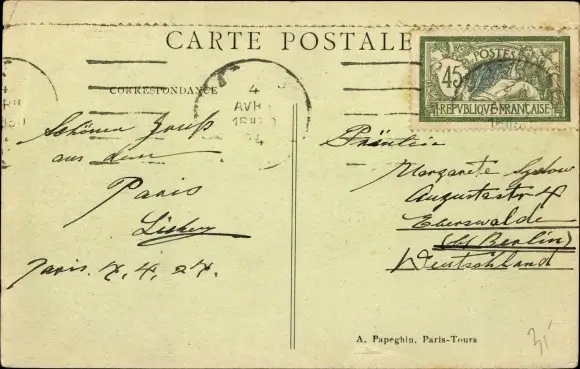 CARTE POSTALE
CORRESPONDANCE
POSTES
45
REPVBLIQVE FRANÇAISE
4
AVR
Schönen Gruß
aus dem
Paris
Paris. 4. 4. 24.
Fräulein
Margarete Sydow
Augustastr 4
Eberswalde
(b/ Berlin)
Deutschland
A. Papeghin, Paris-Tours